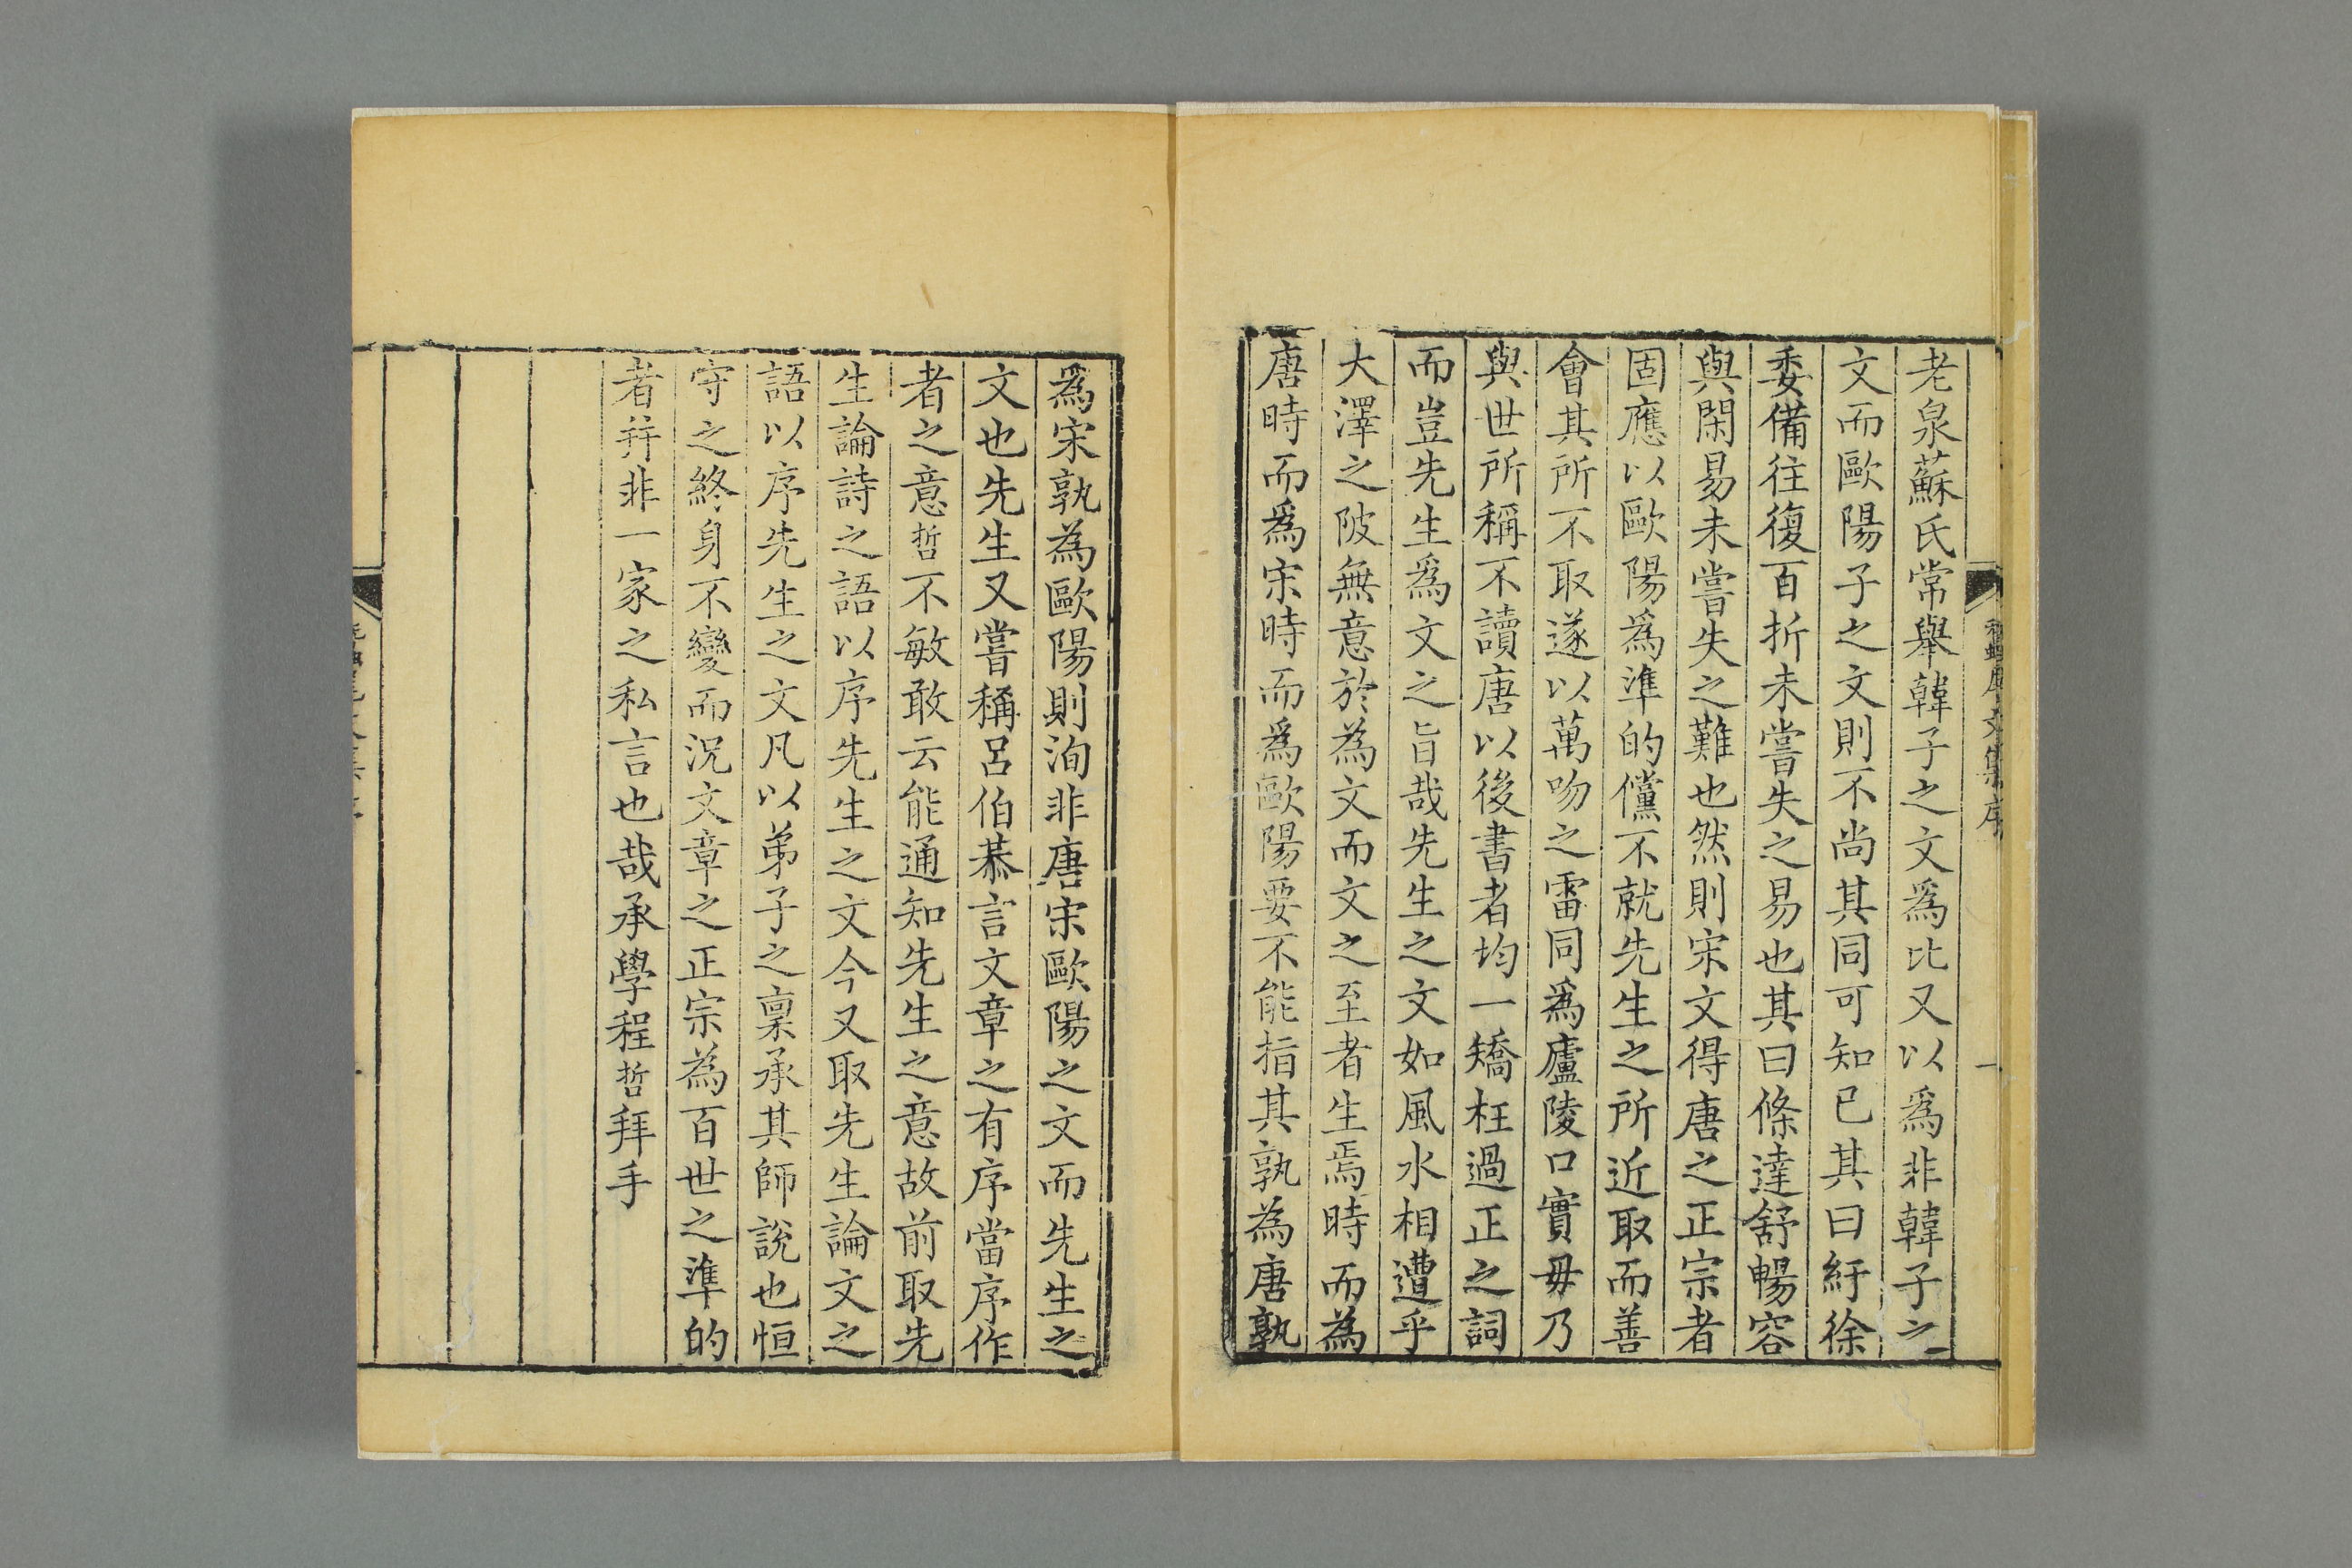 老泉蘇氏常舉韓子之文爲比又以爲非韓子之
文而歐陽子之文則不尚其同可知已其曰紆徐
委備往復百折未嘗失之易也其曰條達舒暢容
與閑易未嘗失之難也然則宋文得唐之正宗者
固應以歐陽爲準的儻不就先生之所近取而善
會其所不取遂以萬吻之雷同爲廬陵口實毋乃
與世所稱不讀唐以後書者均一矯枉過正之詞
而豈先生爲文之旨哉先生之文如風水相遭乎
大澤之陂無意於為文而文之至者生焉時而為
唐時而爲宋時而爲歐陽要不能指其孰為唐孰
爲宋孰為歐陽則洵非唐宋歐陽之文而先生之
文也先生又嘗稱呂伯恭言文章之有序當序作
者之意哲不敏敢云能通知先生之意故前取先
生論詩之語以序先生之文今又取先生論文之
語以序先生之文凡以弟子之稟承其師說也恒
守之終身不變而況文章之正宗為百世之準的
者幷非一家之私言也哉承學程哲拜手